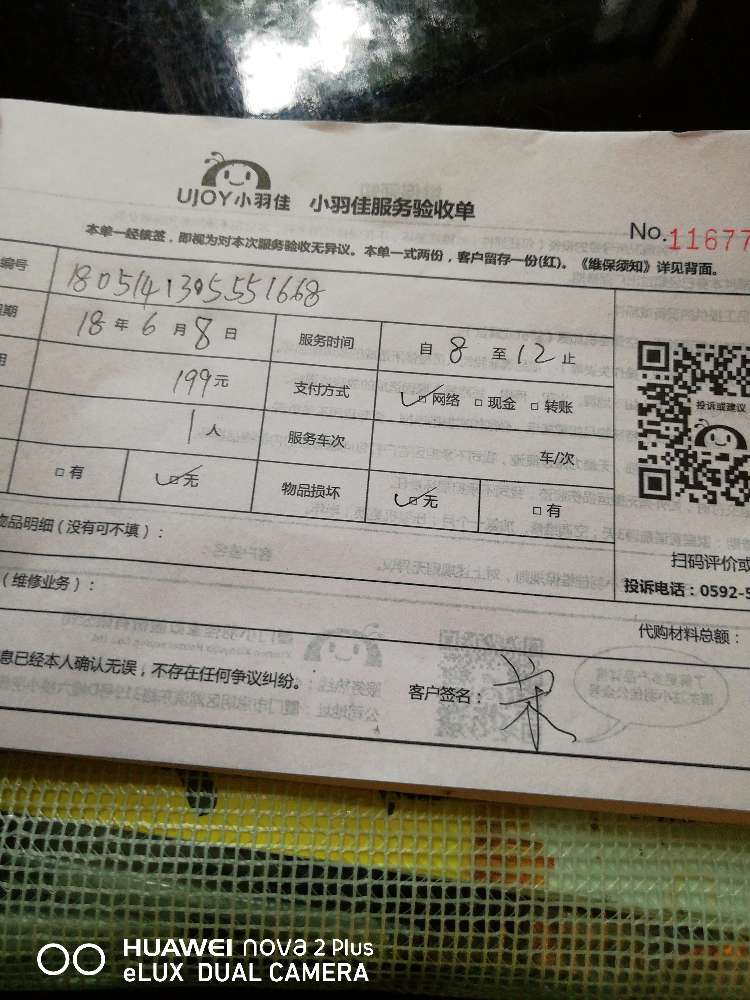 UJOY小羽佳 小羽佳服务验收单
No.11677
本单一经续签，即视为对本次服务验收无异议。本单一式两份，客户留存一份(红)。《维保须知》详见背面。
编号 1805141305551668
期 18年6月8日 服务时间 自8至12止
用 199元 支付方式 网络 现金 转账
1人 服务车次 车/次
有 无 物品损坏 无 有
投诉或建议
物品明细（没有可不填）：
扫码评价或
投诉电话：0592-5
（维修业务）：
代购材料总额：
息已经本人确认无误，不存在任何争议纠纷。 客户签名：
HUAWEI nova 2 Plus
eLUX DUAL CAMERA